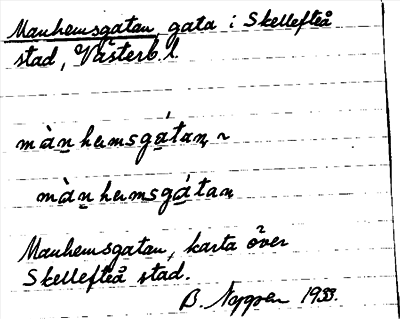 Manhemsgatan, gata i Skellefteå
stad, Västerb. l.
mànhemsgátan, ~
mànhemsgátan
Manhemsgatan, karta över
Skellefteå stad.
B. 1933.